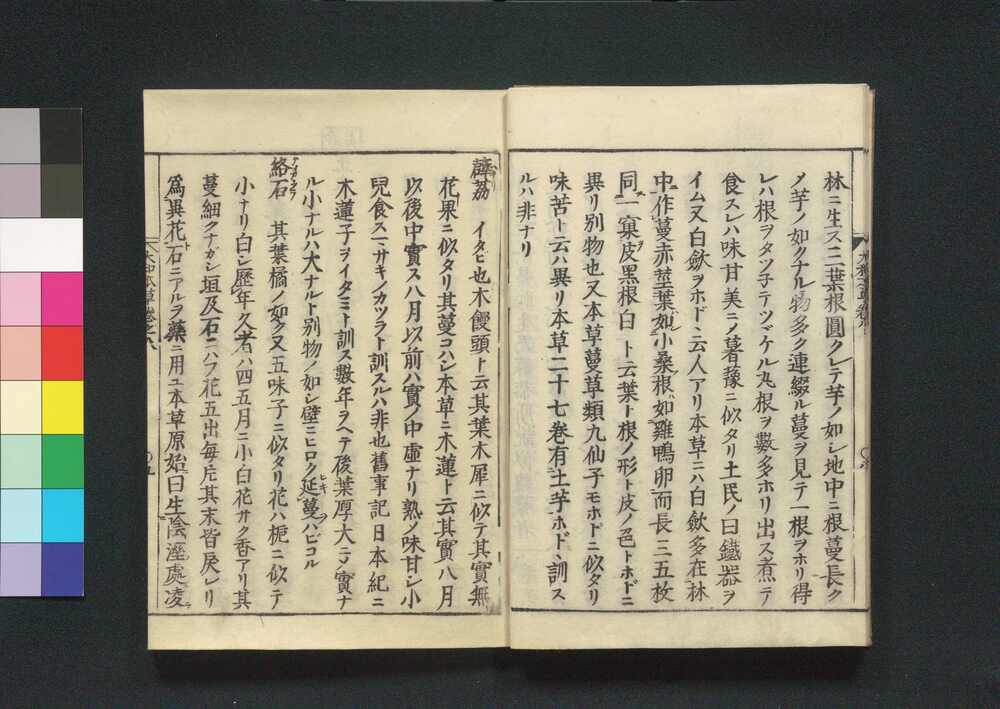 林ニ生ス二葉根圓クレテ芋ノ如シ地中ニ根蔓長ク
ノ芋ノ如クナル物多ク連綴ル蔓ヲ見テ一根ヲホリ得
レハ根ヲタツ子テツヾケル丸根ヲ數多ホリ出ス煮テ
食スレハ味甘美ニノ暑蕷ニ似タリ土民ノ曰鐵器ヲ
イム又白歛ヲホドニ云人アリ本草ニハ白歛多在林
中作蔓赤莖葉如小桑根如雞鴨卵而長三五枚
同一窠皮黑根白ト云葉ト根ノ形ト皮ノ色トホドニ
異リ別物也又本草蔓草類九仙子モホドニ似タリ
味苦ト云ハ異リ本草二十七卷有土芋ホドヽ訓ス
ルハ非ナリ
薜荔 イタヒ也木饅頭ト云其葉木犀ニ似テ其實無
花果ニ似タリ其蔓コハシ本草ニ木蓮ト云其實八月
以後中實ス八月以前ハ實ノ中虛ナリ熟ノ味甘シ小
兒食スマサキノカツラト訓スルハ非也舊事記日本紀ニ
木蓮子ヲイタミト訓ス數年ヲヘテ後葉厚大ニノ實ナ
ル小ナルハ大ナルト別物ノ如シ壁ニヒロク延蔓ハビコル
絡石 其葉橘ノ如ク又五味子ニ似タリ花ハ梔ニ似テ
小ナリ白シ歷年久者ハ四五月ニ小白花サク香アリ其
蔓細クナガシ垣及石ニハフ花五出每片其末皆戾レリ
爲異花石ニアルヲ藥ニ用ユ本草原始曰生陰溼處凌
大和本草卷之八